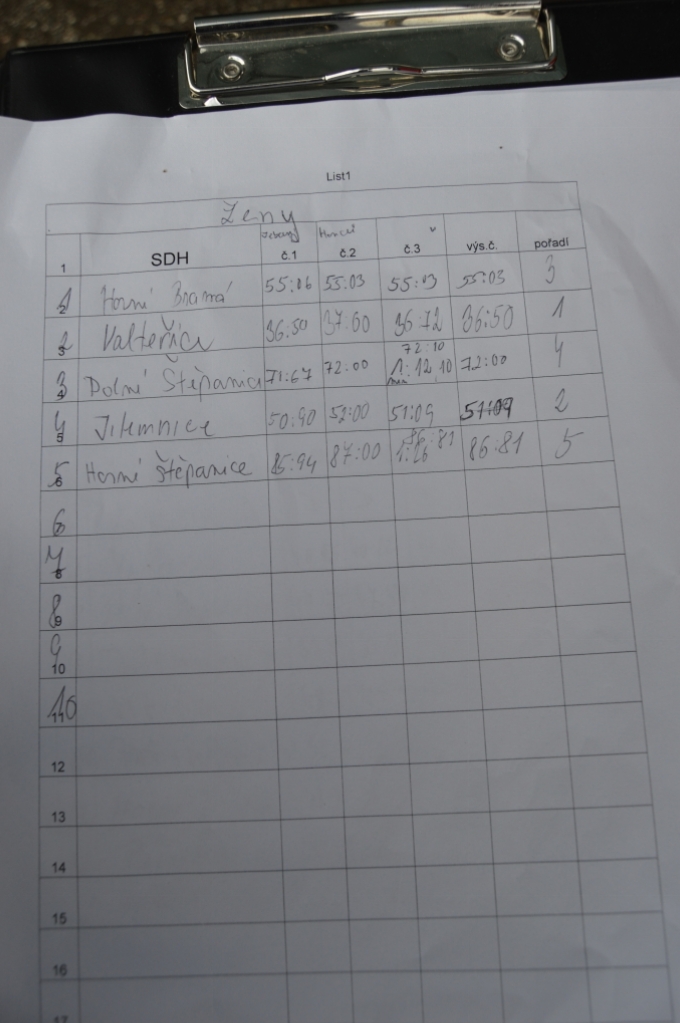 List1
Ženy
1 SDH č.1 č.2 č.3 výs.č. pořadí
1 2 Horní Branná 55:06 55:03 55:03 55:03 3
2 3 Valteřice 36:50 37:60 36:72 36:50 1
72:10
3 4 Dolní Štěpanice 71:67 72:00 1:12,10 72:00 4
4 5 Jilemnice 50:90 52:00 51:09 51:09 2
86:81
5 6 Horní Štěpanice 85:94 87:00 1:26 86:81 5
6
7 8
8 9
9 10
10 11
12
13
14
15
16
17